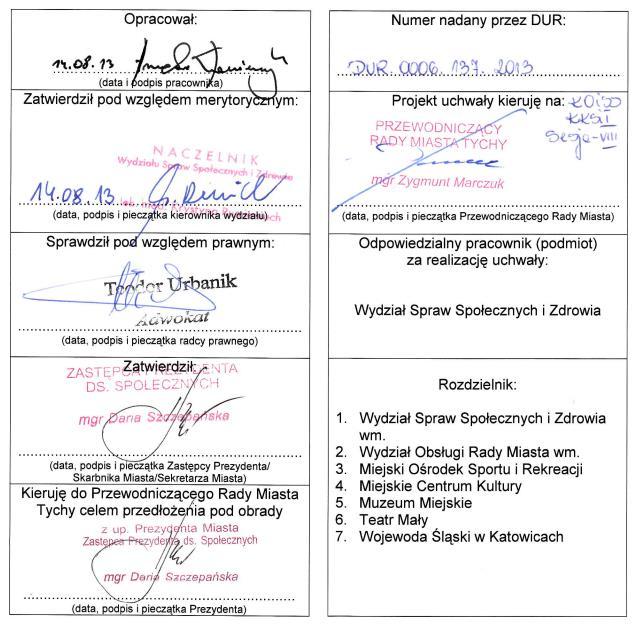 Opracował:
14.08.13
(data i podpis pracownika)
Zatwierdził pod względem merytorycznym:
NACZELNIK
Wydziału Spraw Społecznych i Zdrowia
14.08.13
(data, podpis i pieczątka kierownika wydziału)
Sprawdził pod względem prawnym:
Teodor Urbanik
Adwokat
(data, podpis i pieczątka radcy prawnego)
Zatwierdził:
ZASTĘPCA PREZYDENTA
DS. SPOŁECZNYCH
mgr Daria Szczepańska
(data, podpis i pieczątka Zastępcy Prezydenta/
Skarbnika Miasta/Sekretarza Miasta)
Kieruję do Przewodniczącego Rady Miasta
Tychy celem przedłożenia pod obrady
z up. Prezydenta Miasta
Zastępca Prezydenta ds. Społecznych
mgr Daria Szczepańska
(data, podpis i pieczątka Prezydenta)
Numer nadany przez DUR:
DUR. 0006. 137. 2013
Projekt uchwały kieruję na:
PRZEWODNICZĄCY
RADY MIASTA TYCHY
Sesja-VIII
mgr Zygmunt Marczuk
(data, podpis i pieczątka Przewodniczącego Rady Miasta)
Odpowiedzialny pracownik (podmiot)
za realizację uchwały:
Wydział Spraw Społecznych i Zdrowia
Rozdzielnik:
1. Wydział Spraw Społecznych i Zdrowia
wm.
2. Wydział Obsługi Rady Miasta wm.
3. Miejski Ośrodek Sportu i Rekreacji
4. Miejskie Centrum Kultury
5. Muzeum Miejskie
6. Teatr Mały
7. Wojewoda Śląski w Katowicach